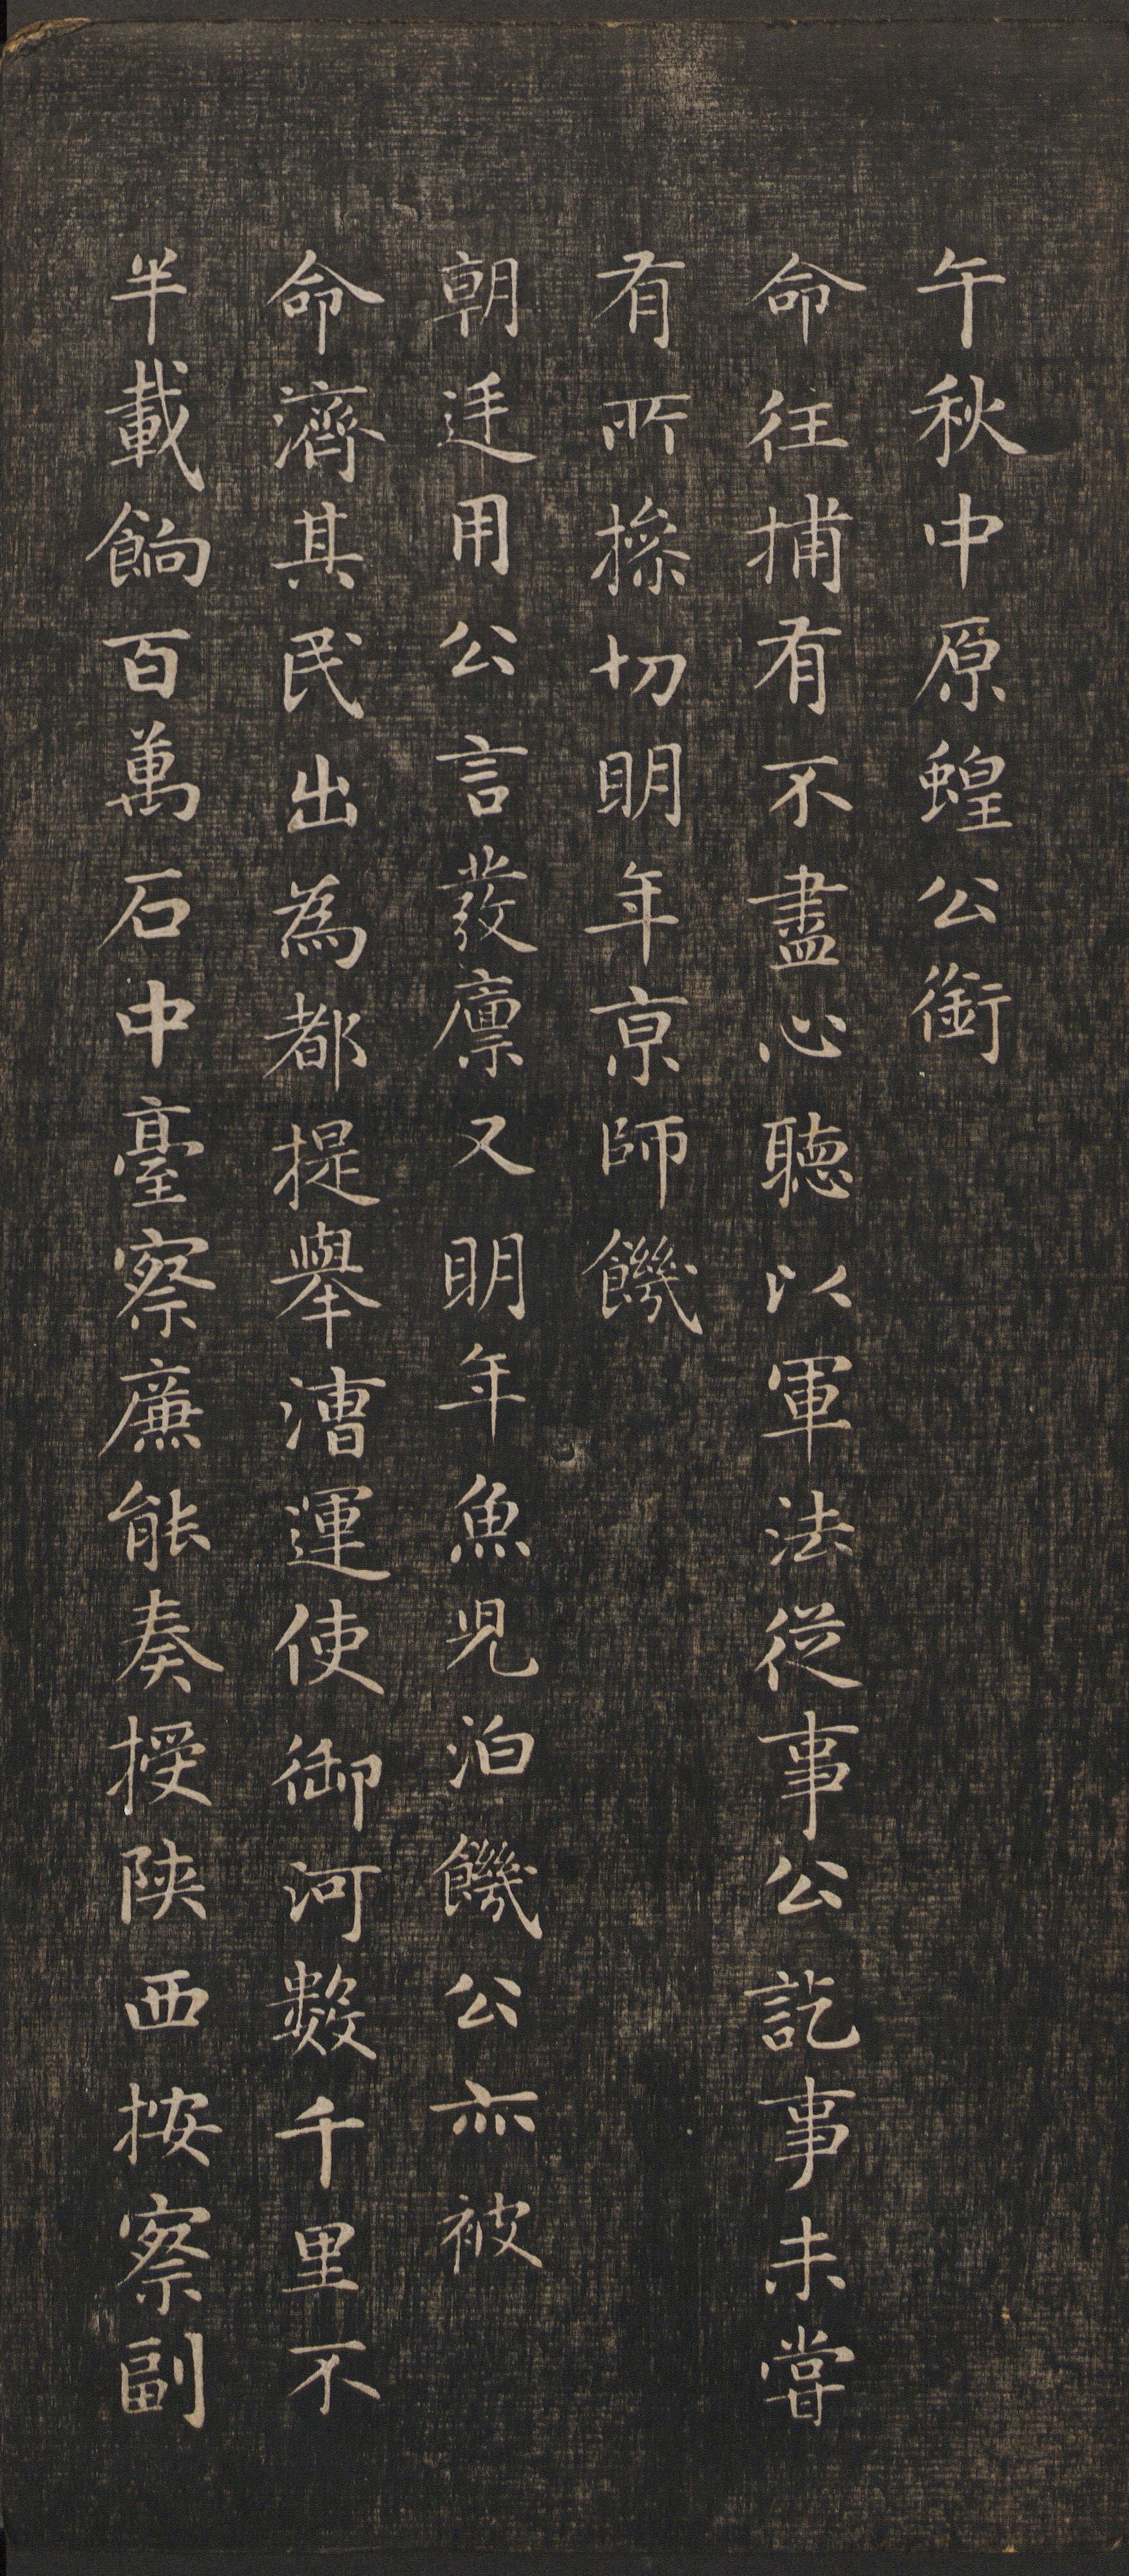 午秋中原蝗公銜
命往捕有不盡心聽以軍法從事公訖事未嘗
有所操切明年京師饑
朝廷用公言發廪又明年魚兒泊饑公亦被
命濟其民出為都提舉漕運使御河數千里不
半載餉百萬石中臺察廉能奏授陝西按察副